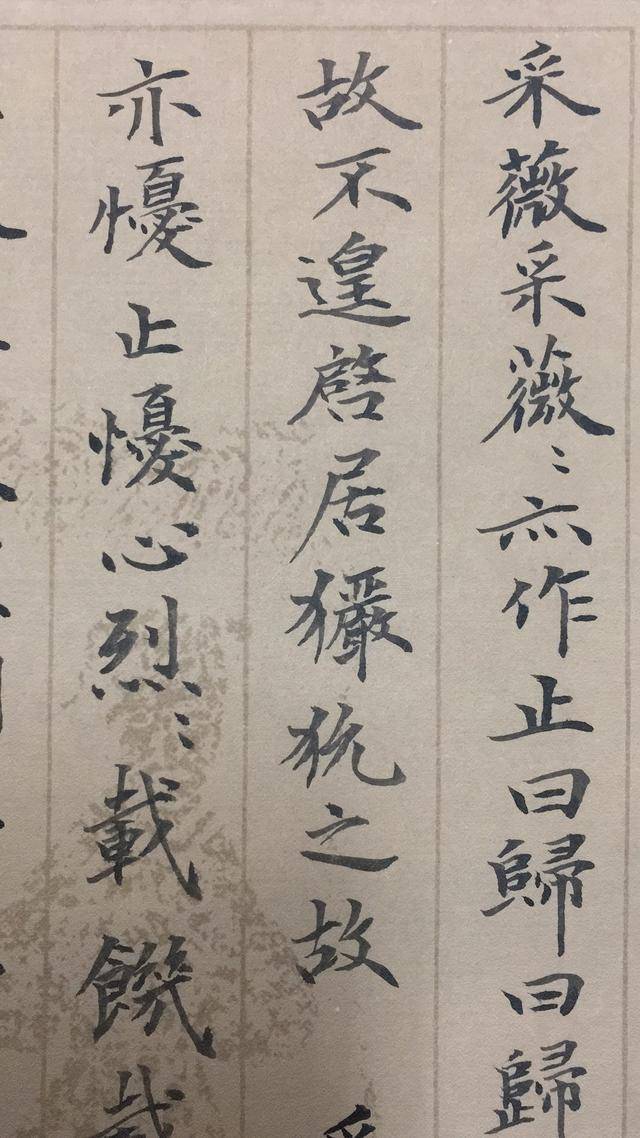 采薇采薇〻亦作止曰歸曰歸
故不遑啓居玁狁之故
亦懮止懮心烈〻載饑載